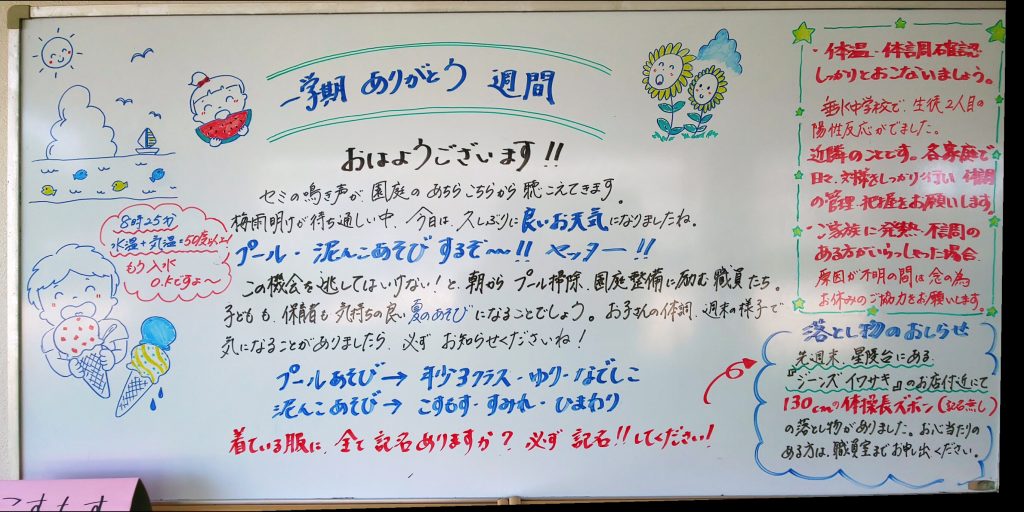 一学期 ありがとう 週間
おはようございます!!
セミの鳴き声が、園庭のあちらこちらから聴こえてきます。
梅雨明けが待ち遠しい中、今日は、久しぶりに良いお天気になりましたね。
プール・泥んこあそび するぞ〜!! ヤッター!!
この機会を逃してはいけない!と、朝から プール掃除、園庭整備に励む職員たち。
子どもも、保育者も気持ちの良い夏のあそびになることでしょう。お子さんの体調、週末の様子で
気になることがありましたら、必ず お知らせくださいね!
プールあそび→ 年少3クラス・ゆり・なでしこ
泥んこあそび→ こすもす・すみれ・ひまわり
着ている服に、全て記名ありますか? 必ず 記名!!してください!
8時25分
水温+気温=50度以上!
もう入水
O.Kですよ〜
・体温・体調確認
しっかりとおこないましょう。
垂水中学校で、生徒2人目の
陽性反応がでました。
近隣のことです。各家庭で
日々、対策をしっかり行い 体調
の管理・把握をお願いします。
・ご家族に発熱・不調の
ある方がいらっしゃった場合
原因が不明の間は念の為
お休みのご協力をお願いします。
落とし物のおしらせ
先週末、星陵台にある
『ジーンズ イワサキ』のお店付近にて
130cmの体操長ズボン(記名無し)
の落とし物がありました。お心当たりの
ある方は、職員室までお申し出ください。
こすもす